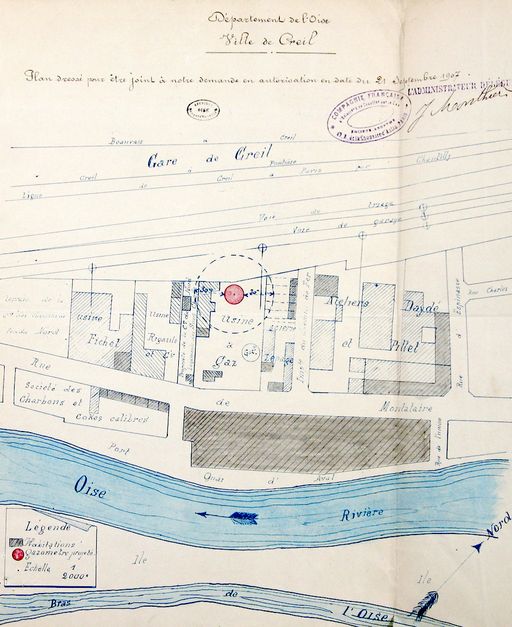 Département de l'Oise
Ville de Creil
Plan dressé pour être joint à notre demande en autorisation en date du 21 Septembre 1907
L'ADMINISTRATEUR DÉLÉGUÉ
COMPAGNIE FRANÇAISE
Beauvais à Creil
Gare de Creil
Ligne de Creil à Pontoise
Creil à Paris par Chantilly
Voie de triage
Voie de garage
Rue Charles
Usine
Fichet
Usine
Rigault
et Cie
Usine
à
Gaz
Gaz
Ateliers
et
Daydé
Pillet
Rue de Montataire
Société des
Charbons et
cokes calibrés
Port
Quai d'Aval
Oise
Rivière
Légende
Habitations
Gazomètre projeté
Echelle 1
2000e
Ile
Ile
Nord
Bras de L'OISE